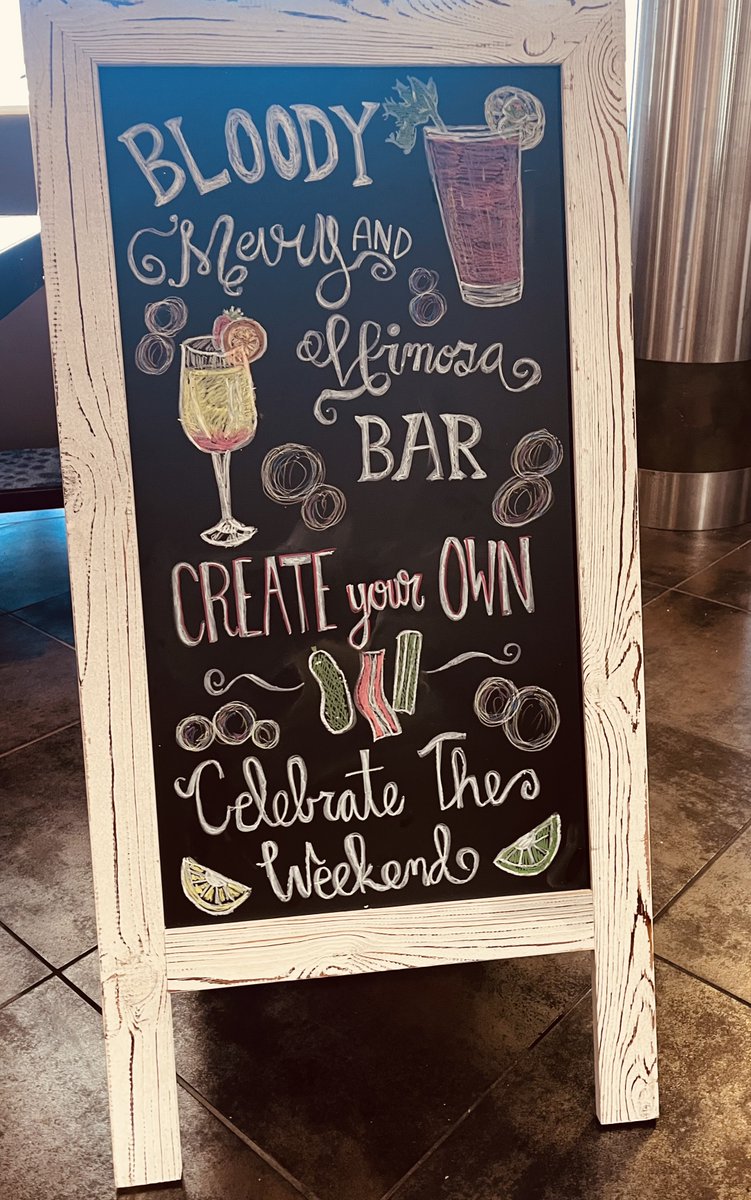 BLOODY
Merry AND
Mimosa
BAR
CREATE your OWN
Celebrate The
Weekend